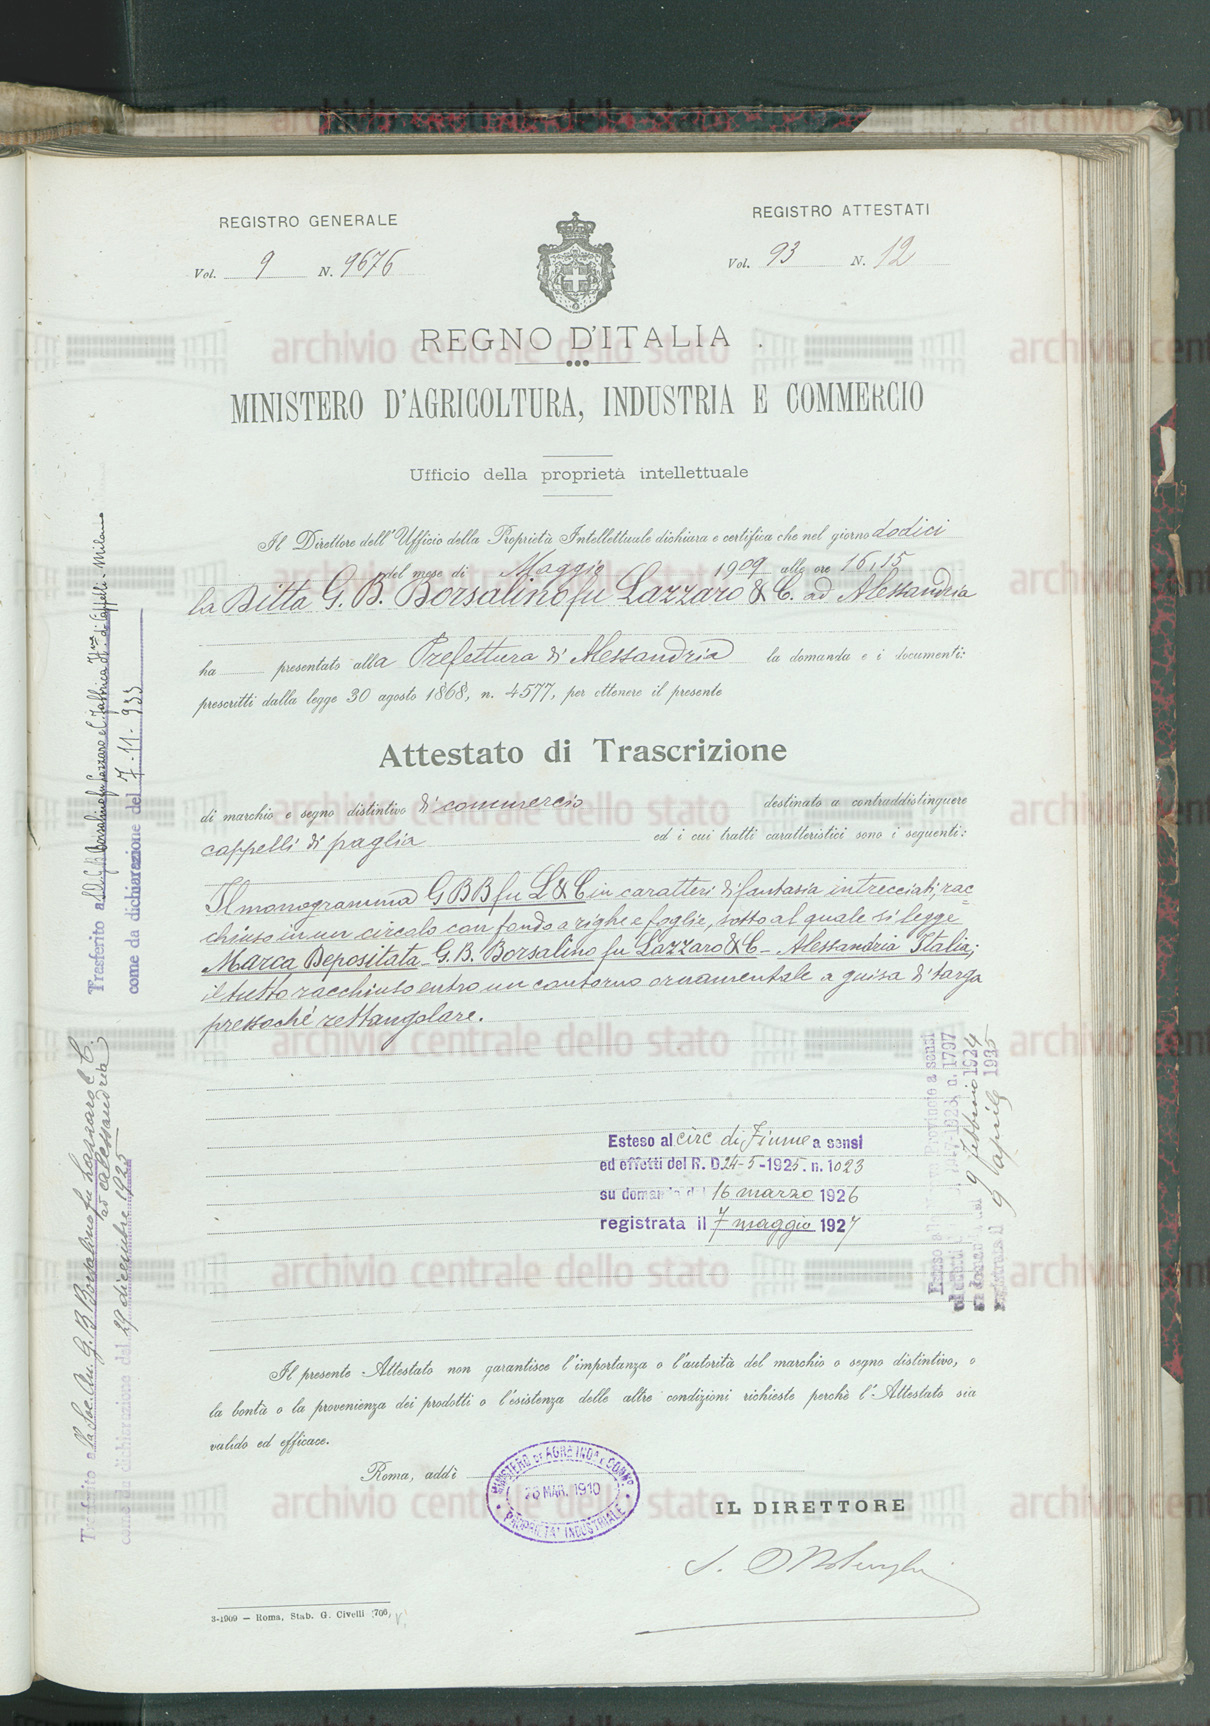 REGISTRO GENERALE
Vol. 9 N. 9676
REGISTRO ATTESTATI
Vol. 93 N. 12
REGNO D'ITALIA
MINISTERO D'AGRICOLTURA, INDUSTRIA E COMMERCIO
Ufficio della proprietà intellettuale
Il Direttore dell'Ufficio della Proprietà Intellettuale dichiara e certifica che nel giorno dodici
del mese di Maggio 1909 alle ore 16,15
la Ditta G. B. Borsalino fu Lazzaro & C. ad Alessandria
ha presentato alla Prefettura di Alessandria la domanda e i documenti:
prescritti dalla legge 30 agosto 1868, n. 4577, per ottenere il presente
Attestato di Trascrizione
di marchio e segno distintivo di commercio destinato a contraddistinguere
cappelli di paglia ed i cui tratti caratteristici sono i seguenti:
Il monogramma G B B fu L & C in caratteri di fantasia intrecciati, rac=
chiuso in un circolo con fondo a righe e foglie, sotto al quale si legge
Marca Depositata - G. B. Borsalino fu Lazzaro & C - Alessandria Italia;
il tutto racchiuso entro un contorno ornamentale a guisa di targa
pressochè rettangolare.
Esteso al circ di Fiume a sensi
ed effetti del R. D. 24-5-1925. n. 1023
su domanda del 16 marzo 1926
registrata il 7 maggio 1927
Esteso Provincie a sensi
ed effetti 1923, n. 1797
su domanda del 9 febbraio 1924
registrata il 9 aprile 1925
Trasferito a Borsalino fu Lazzaro e C. Fabbrica di Cappelli - Milano
come da dichiarazione del 7-11-933
Trasferito alla Soc. An. G. B. Borsalino fu Lazzaro e C.
ad Alessandria
come da dichiarazione del 29 dicembre 1925
Il presente Attestato non garantisce l'importanza o l'autorità del marchio o segno distintivo, o
la bontà o la provenienza dei prodotti o l'esistenza delle altre condizioni richieste perchè l'Attestato sia
valido ed efficace.
Roma, addì
MINISTERO DI AGR. IND. E COMM.
26 MAR. 1910
PROPRIETA' INDUSTRIALE
IL DIRETTORE
3-1909 — Roma, Stab. G. Civelli
archivio centrale dello stato